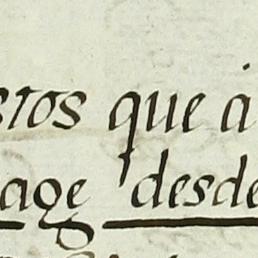 stos que à
age desde